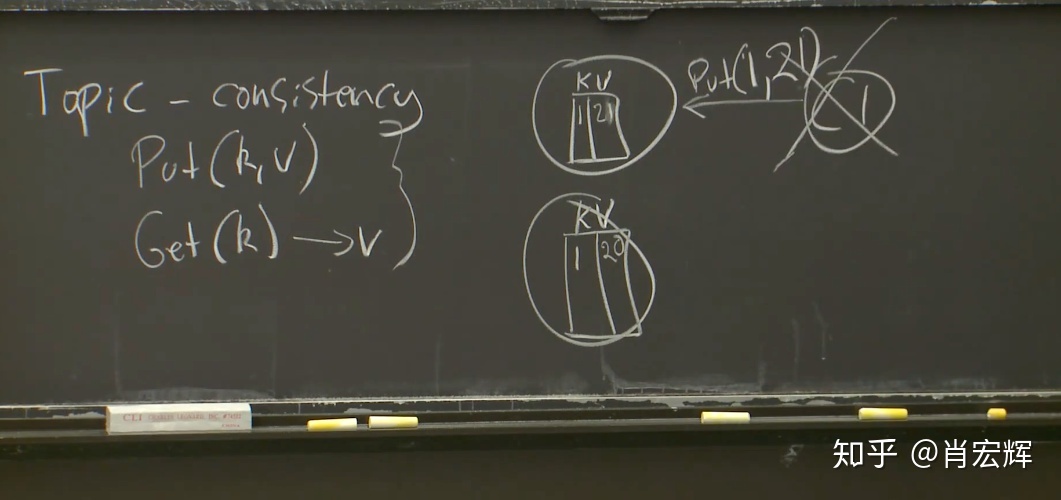 Topic - consistency
Put(k,v)
Get(k) → v
KV
1 21
Put(1,21)
C1
KV
1 20
知乎 @肖宏辉